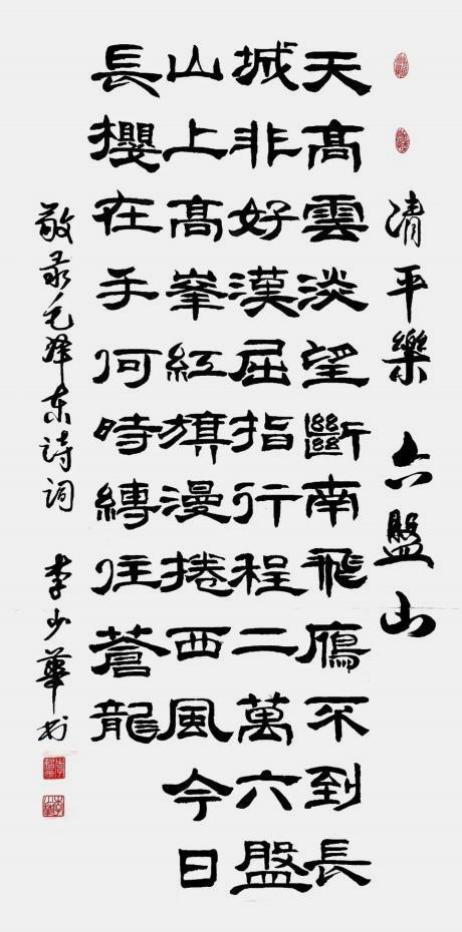 清平樂 六盤山
天髙雲淡望斷南飛鴈不到長
城非好漢屈指行程二萬六盤
山上髙峯紅旗漫捲西風今日
長櫻在手何時縛住蒼龍
敬录毛泽东诗词 李少華书